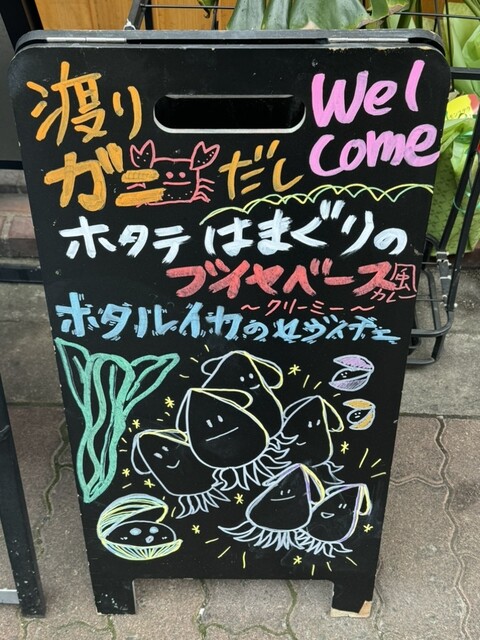 渡り
ガニ だし
Wel
come
ホタテ はまぐりの
ブイヤベース風
カレー
～クリーミー～
ホタルイカのセヴィチェ